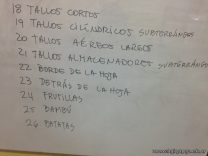 18 TALLOS CORTOS
19 TALLOS CILÍNDRICOS SUBTERRÁNEOS
20 TALLOS AÉREOS LARGOS
21 TALLOS ALMACENADORES SUBTERRÁNEOS
22 BORDE DE LA HOJA
23 DETRÁS DE LA HOJA
24 FRUTILLAS
25 BAMBÚ
26 BATATAS